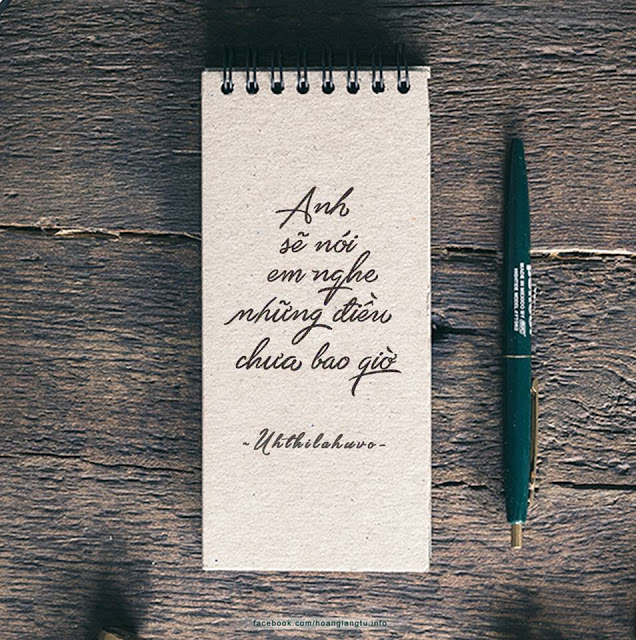 Anh
sẽ nói
em nghe
những điều
chưa bao giờ
~Uhthilahuvo~
MADE IN MEXICO BY
facebook.com/hoanglangtu.info